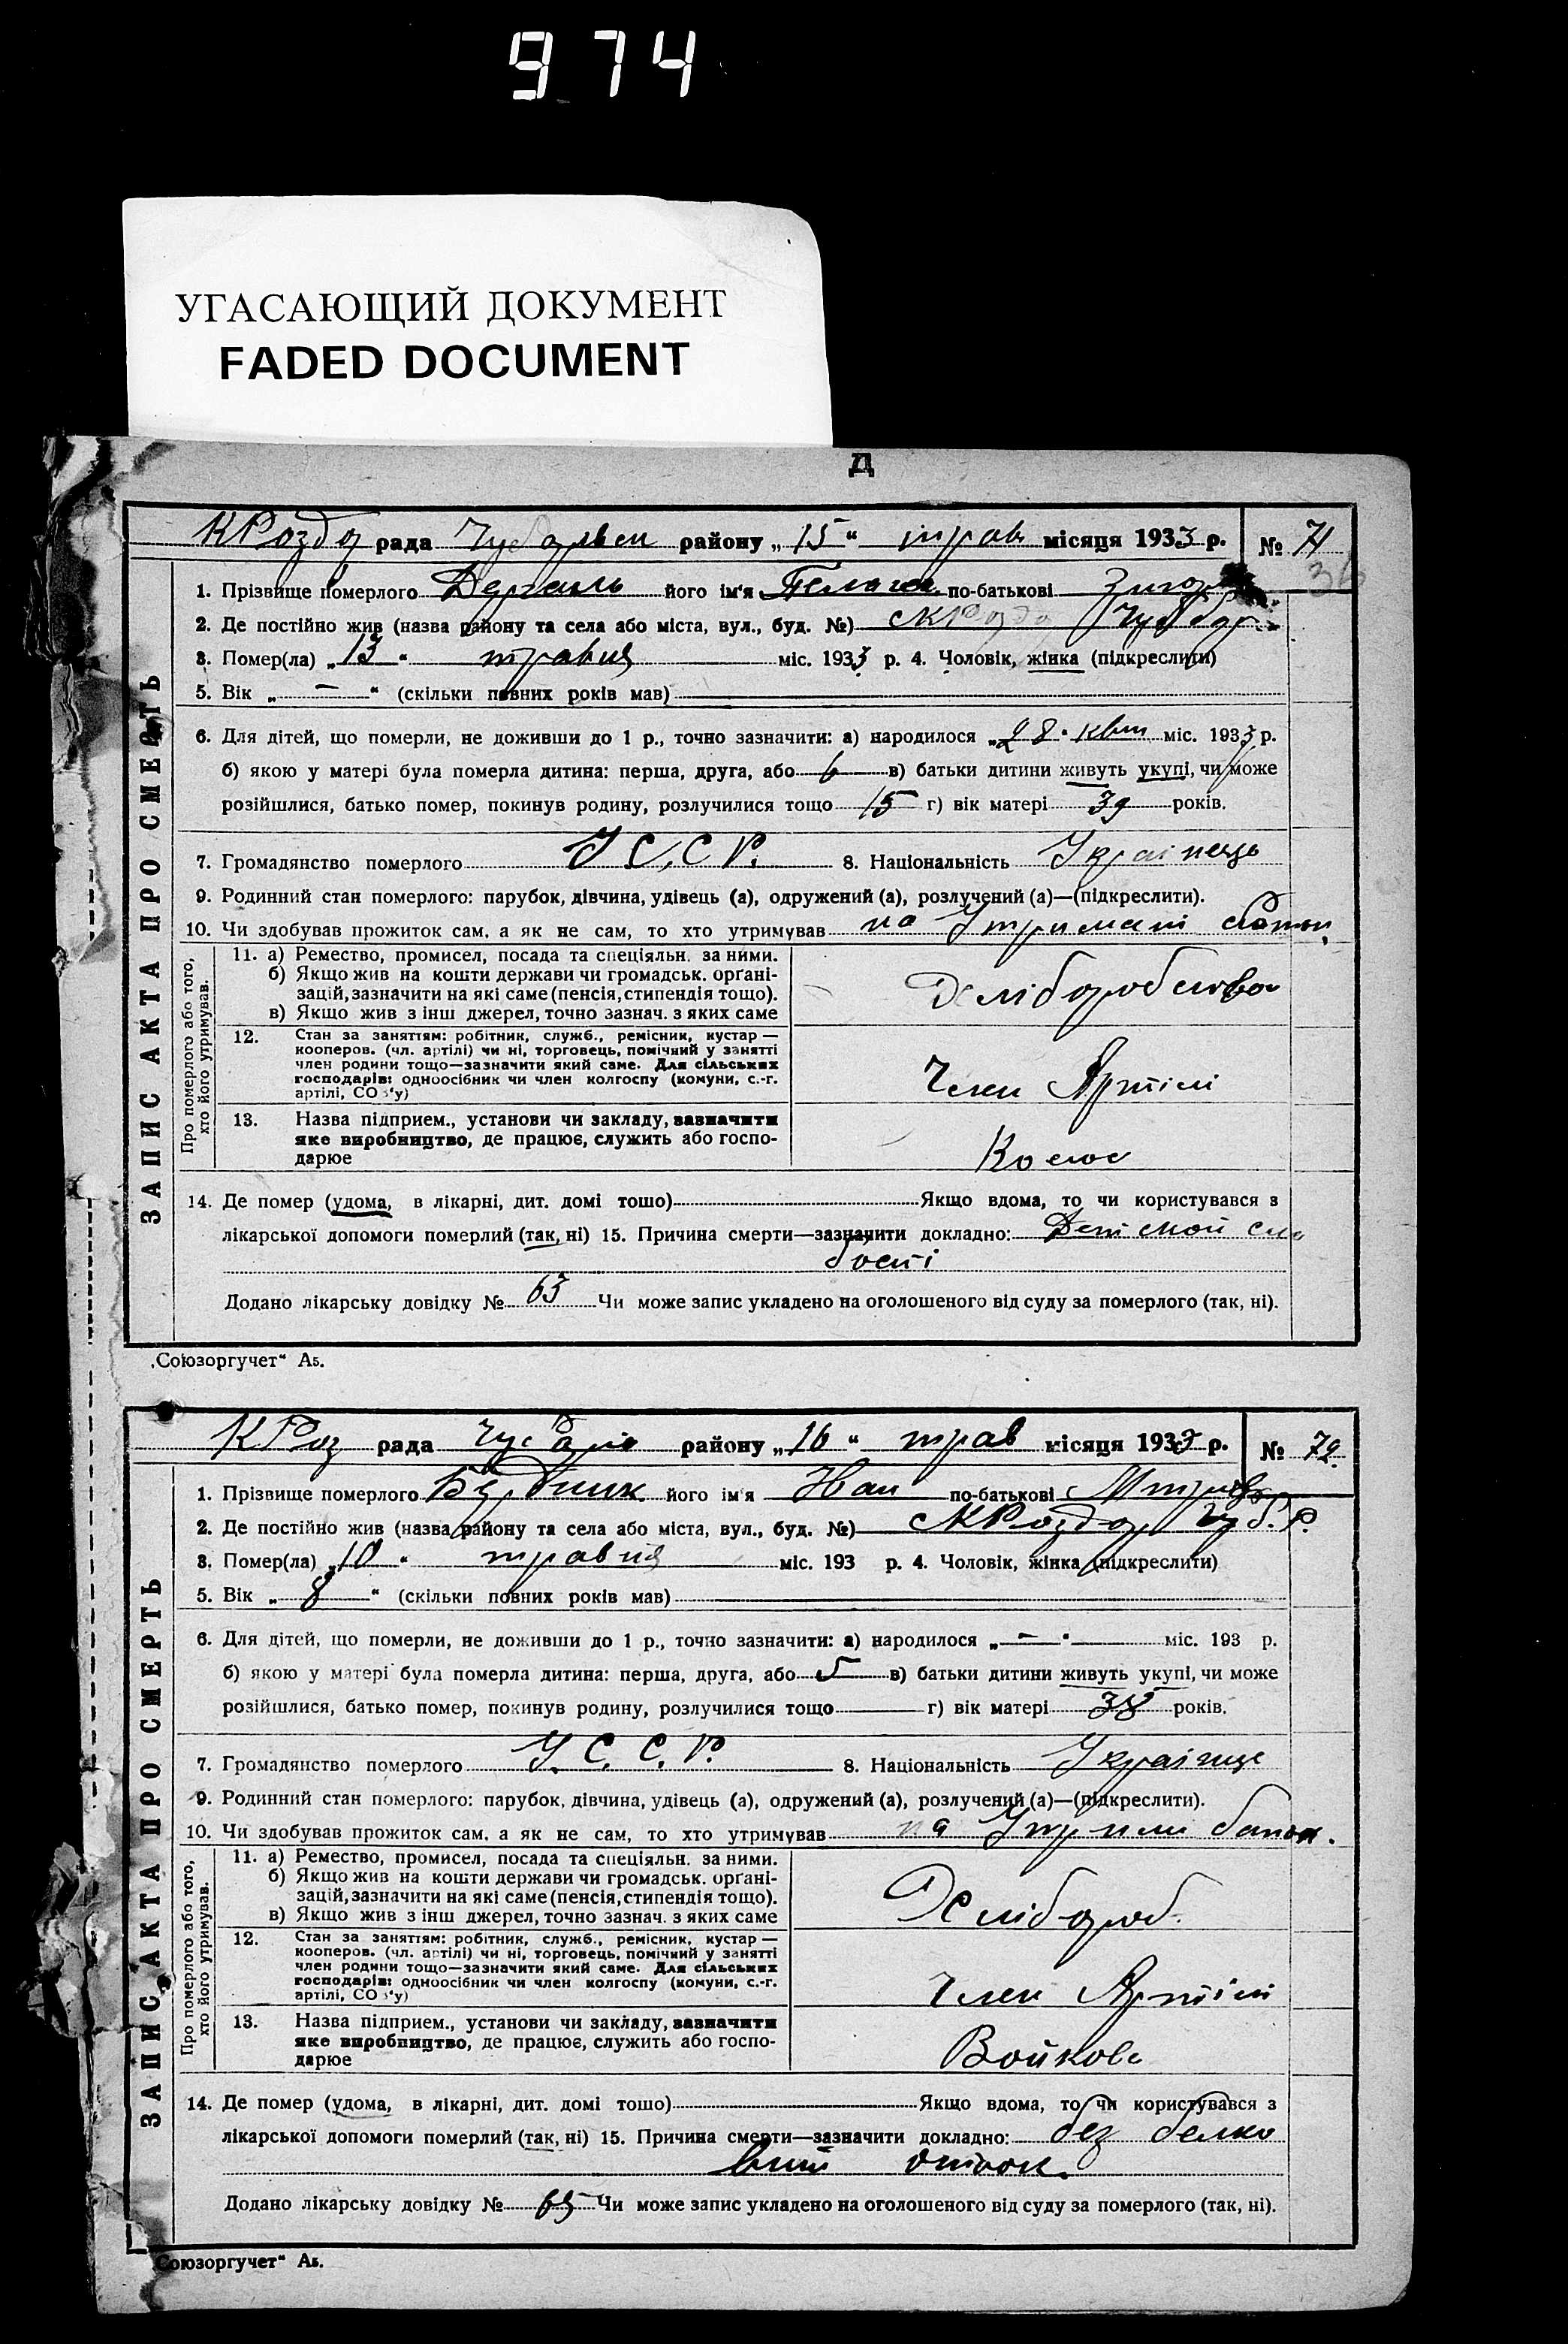 974
УГАСАЮЩИЙ ДОКУМЕНТ
FADED DOCUMENT
Д
КРоздо рада Чубарьск району „15“ трав місяця 1933 р. № 71
36
1. Прізвище померлого його ім'я Пелагея по-батькові
2. Де постійно жив (назва району та села або міста, вул., буд. №) с КРоздо Чубар
3. Помер(ла) „13“ травня міс. 1933 р. 4. Чоловік, жінка (підкреслити)
5. Вік „ — “ (скільки повних років мав)
6. Для дітей, що померли, не доживши до 1 р., точно зазначити: а) народилося „28“ квіт міс. 1933 р.
б) якою у матері була померла дитина: перша, друга, або 6 в) батьки дитини живуть укупі, чи може
розійшлися, батько помер, покинув родину, розлучилися тощо 15 г) вік матері 39 років.
7. Громадянство померлого У.С.С.Р. 8. Національність Українець
9. Родинний стан померлого: парубок, дівчина, удівець (а), одружений (а), розлучений (а)—(підкреслити).
10. Чи здобував прожиток сам, а як не сам, то хто утримував на Утримані батьк.
ЗАПИС АКТА ПРО СМЕРТЬ
Про померлого або того, хто його утримував.
11. а) Ремество, промисел, посада та спеціяльн. за ними.
б) Якщо жив на кошти держави чи громадськ. орґані-
зацій, зазначити на які саме (пенсія, стипендія тощо).
в) Якщо жив з інш джерел, точно зазнач. з яких саме
Хліборобство
12. Стан за заняттям: робітник, служб., ремісник, кустар —
кооперов. (чл. артілі) чи ні, торговець, помічний у занятті
член родини тощо—зазначити який саме. Для сільських
господарів: одноосібник чи член колгоспу (комуни, с.-г.
артілі, СОЗ'у)
Член Артілі
13. Назва підприєм., установи чи закладу, зазначити
яке виробництво, де працює, служить або госпо-
дарює
Колос
14. Де помер (удома, в лікарні, дит. домі тощо) Якщо вдома, то чи користувався з
лікарської допомоги померлий (так, ні) 15. Причина смерти—зазначити докладно: Детской сла
бості
Додано лікарську довідку № 63 Чи може запис укладено на оголошеного від суду за померлого (так, ні).
„Союзоргучет“ Аб.
КРоз рада Чубарів району „16“ трав місяця 1933 р. № 72
1. Прізвище померлого Бубник його ім'я Иван по-батькові
2. Де постійно жив (назва району та села або міста, вул., буд. №) с КРоздор Чуб. Р.
3. Помер(ла) „10“ травня міс. 193 р. 4. Чоловік, жінка (підкреслити)
5. Вік „8“ (скільки повних років мав)
6. Для дітей, що померли, не доживши до 1 р., точно зазначити: а) народилося „ — “ міс. 193 р.
б) якою у матері була померла дитина: перша, друга, або 5 в) батьки дитини живуть укупі, чи може
розійшлися, батько помер, покинув родину, розлучилися тощо г) вік матері 38 років.
7. Громадянство померлого У.С.С.Р. 8. Національність Українце
9. Родинний стан померлого: парубок, дівчина, удівець (а), одружений (а), розлучений (а)—(підкреслити).
10. Чи здобував прожиток сам, а як не сам, то хто утримував на Утрим батьк.
ЗАПИС АКТА ПРО СМЕРТЬ
Про померлого або того, хто його утримував.
11. а) Ремество, промисел, посада та спеціяльн. за ними.
б) Якщо жив на кошти держави чи громадськ. орґані-
зацій, зазначити на які саме (пенсія, стипендія тощо).
в) Якщо жив з інш джерел, точно зазнач. з яких саме
Хлібороб.
12. Стан за заняттям: робітник, служб., ремісник, кустар —
кооперов. (чл. артілі) чи ні, торговець, помічний у занятті
член родини тощо—зазначити який саме. Для сільських
господарів: одноосібник чи член колгоспу (комуни, с.-г.
артілі, СОЗ'у)
Член Артілі
13. Назва підприєм., установи чи закладу, зазначити
яке виробництво, де працює, служить або госпо-
дарює
Войкова
14. Де помер (удома, в лікарні, дит. домі тощо) Якщо вдома, то чи користувався з
лікарської допомоги померлий (так, ні) 15. Причина смерти—зазначити докладно: без белко
вий отьок.
Додано лікарську довідку № 65 Чи може запис укладено на оголошеного від суду за померлого (так, ні).
Союзоргучет“ Аб.